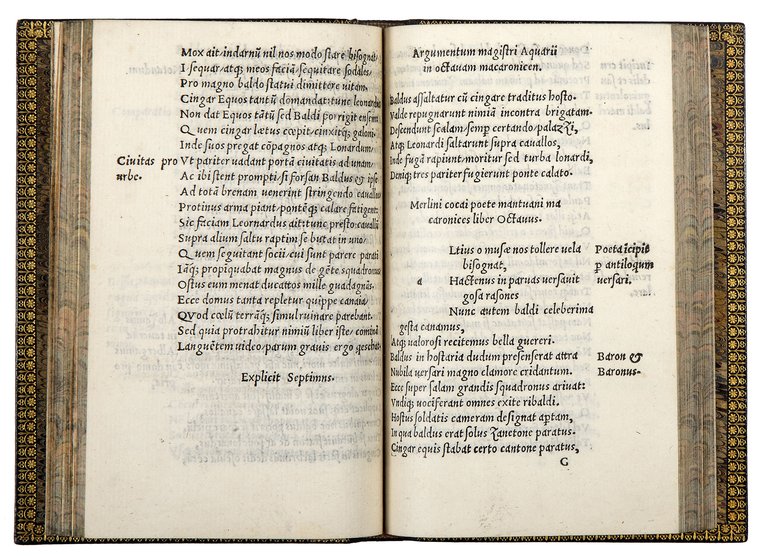 Mox ait, indarnũ nil nos modo stare bisognat
I sequar, atq; meos faciã, sequitare sodales,
Pro magno baldo statui dimittere vitam,
Cingar Equos tantũ domandat, itune leonardus
Non dat Equos tãtũ sed Baldi porrigit ensem,
Quem cingar lætus cœpit, cinxitq; galoni,
Inde suos pregat cõpagnos atq; Lonardum,
Civitas pro urbe.
Vt pariter vadant portã civitatis ad unam,
Ac ibi stent prompti, si forsan Baldus & ipse
Ad totã brenam venerint stringendo cavallos
Protinus arma piant, pontẽq; calare fatigent;
Sic faciam Leornardus ait, tunc presto cavalli
Supra alium saltu raptim se butat in uno,
Quem seguitant socii, cui sunt parere parati
Iãq; propiquabat magnus de gẽte squadronus
Ostus eum menat ducattos mille guadagnat,
Ecce domus tanta repletur quippe canaia,
QVod cœlũ terrãq; simul ruinare parebant.
Sed quia protrahitur nimiũ liber iste, comĩnũ
Languẽtem video, parum gravis ergo qescha
Explicit Septimns.
Argumentum magistri Aquarii
in octavam macaronicen.
Baldus assaltatur cũ cingare traditus hosto.
Valde repugnarunt nimiã incontra brigatam.
Descendunt scalam, semp certando, palazzi,
Atq; Leonardi saltarunt supra cavallos,
Inde fugã rapiunt, moritur sed turba lonardi,
Deniq; tres pariter fugierunt ponte calato.
Merlini cocai poete mantuani ma
caronices liber Octavus.
a
Ltius o musæ nos tollere vela
bisognat,
Hactenus in parvas versavit
gosa rasones
Nunc autem baldi celeberima
gesta canamus,
Poeta ĩcipit
p antiloquũ
versari.
Atq; valorosi recitemus bella guereri.
Baldus in hostaria dudum presenserat attra
Nubila versari magno clamore cridantum.
Baron &
Baronus.
Ecce super salam grandis squadronus arivat:
Vndiq; vociferant omnes exite ribaldi.
Hostus soldatis cameram designat aptam,
In qua baldus erat solus zanetone paratus.
Cingar equis stabat certo cantone paratus,
G